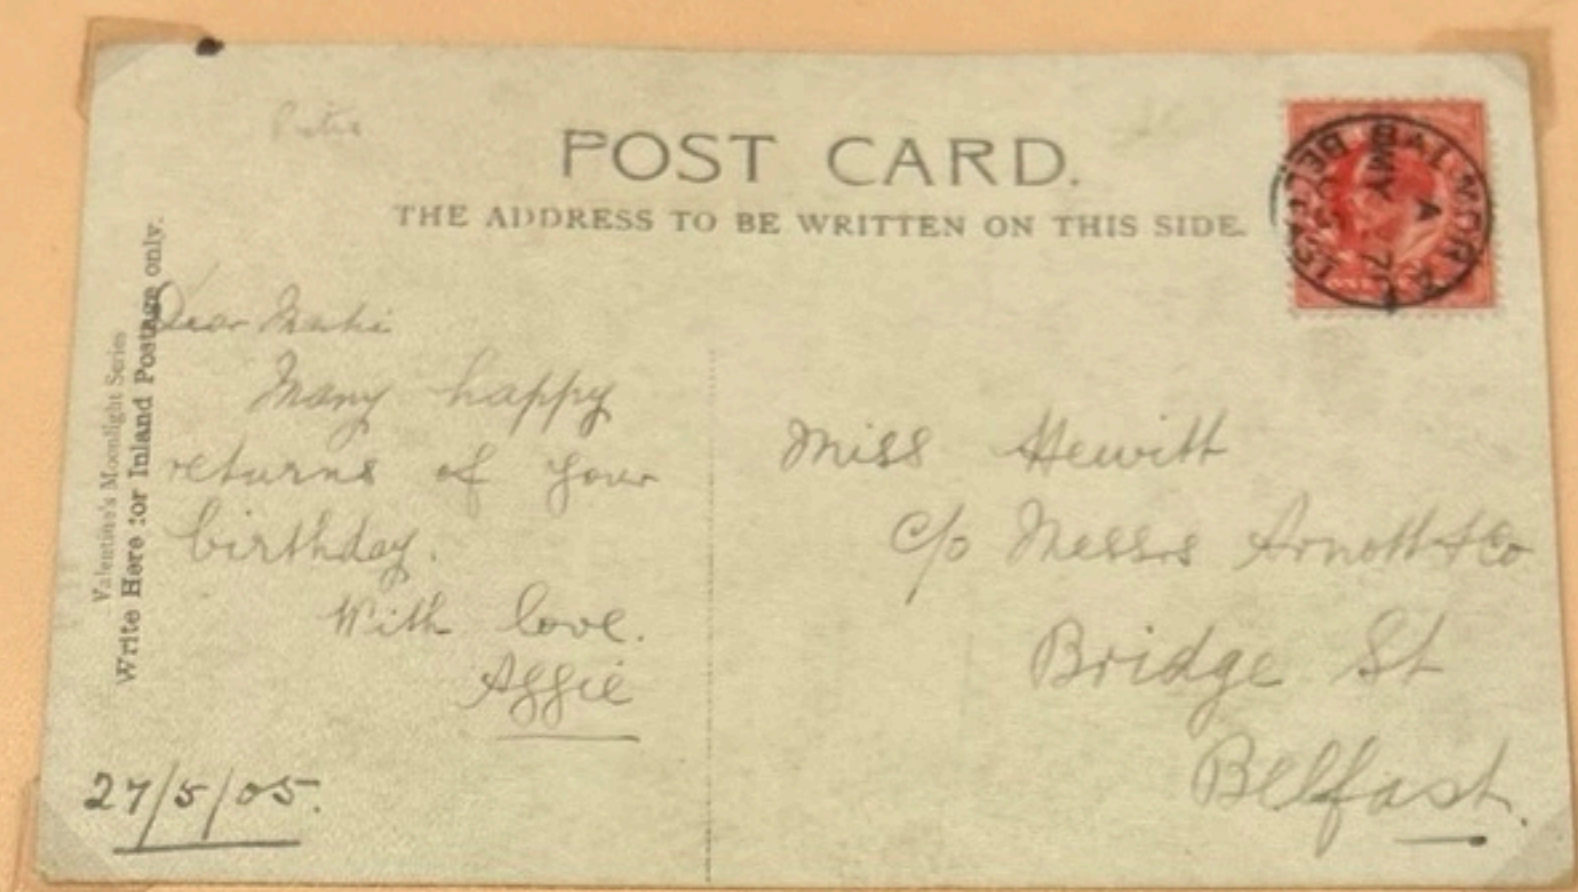 POST CARD.
THE ADDRESS TO BE WRITTEN ON THIS SIDE.
Valentine's Moonlight Series
Write Here for Inland Postage only.
Dear
Many happy
returns of your
birthday.
With love.
Aggie
27/5/05.
Miss Hewitt
c/o Messrs Arnott & Co
Bridge St
Belfast.
BELFAST
A
MY 27